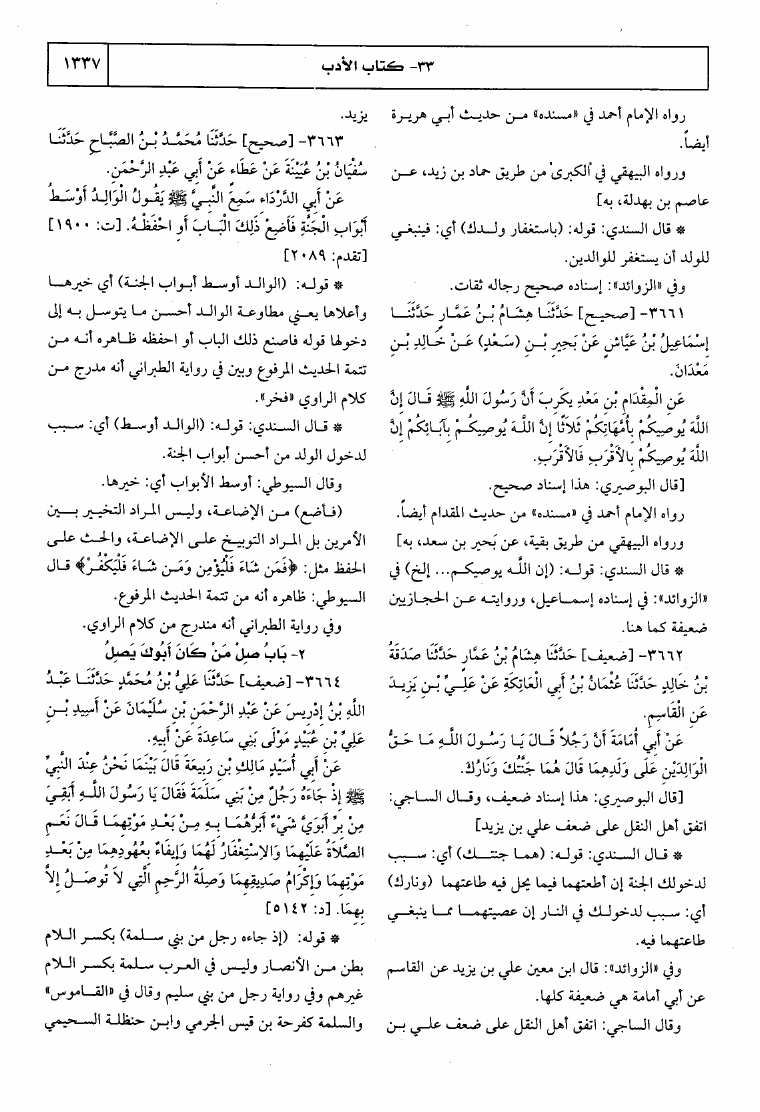 ٣٣- كتاب الأدب
١٣٣٧
رواه الإمام أحمد في «مسنده» من حديث أبي هريرة
أيضاً.
ورواه البيهقي في "الكبرى" من طريق حماد بن زيد، عن
عاصم بن بهدلة، به]
* قال السندي: قوله: (باستغفار ولدك) أي: فينبغي
للولد أن يستغفر للوالدين.
وفي «الزوائد»: إسناده صحيح رجاله ثقات.
٣٦٦١- [صحيح] حَدَّثَنَا هِشَامُ بْنُ عَمَّارٍ حَدَّثَنَا
إِسْمَاعِيلُ بْنُ عَيَّاشٍ عَنْ بَحِيرِ بْنِ (سَعْدٍ) عَنْ خَالِدِ بْنِ
مَعْدَانَ.
عَنِ الْمِقْدَامِ بْنِ مَعْدِ يكَرِبَ أَنَّ رَسُولَ اللَّهِ ﷺ قَالَ إِنَّ
اللَّهَ يُوصِيكُمْ بِأُمَّهَاتِكُمْ ثَلاَثًا إِنَّ اللَّهَ يُوصِيكُمْ بِآبَائِكُمْ إِنَّ
اللَّهَ يُوصِيكُمْ بِالأَقْرَبِ فَالأَقْرَبِ.
[قال البوصيري: هذا إسناد صحيح.
رواه الإمام أحمد في «مسنده» من حديث المقدام أيضاً.
ورواه البيهقي من طريق بقية، عن بَحير بن سعد، به]
* قال السندي: قوله: (إن اللَّه يوصيكم... إلخ) في
«الزوائد»: في إسناده إسماعيل، وروايته عن الحجازيين
ضعيفة كما هنا.
٣٦٦٢- [ضعيف] حَدَّثَنَا هِشَامُ بْنُ عَمَّارٍ حَدَّثَنَا صَدَقَةُ
بْنُ خَالِدٍ حَدَّثَنَا عُثْمَانُ بْنُ أَبِي الْعَاتِكَةِ عَنْ عَلِيِّ بْنِ يَزِيدَ
عَنِ الْقَاسِمِ.
عَنْ أَبِي أُمَامَةَ أَنَّ رَجُلاً قَالَ يَا رَسُولَ اللَّهِ مَا حَقُّ
الْوَالِدَيْنِ عَلَى وَلَدِهِمَا قَالَ هُمَا جَنَّتُكَ وَنَارُكَ.
[قال البوصيري: هذا إسناد ضعيف، وقال الساجي:
اتفق أهل النقل على ضعف علي بن يزيد]
* قال السندي: قوله: (هما جنتك) أي: سبب
لدخولك الجنة إن أطعتهما فيما يحل فيه طاعتهما (ونارك)
أي: سبب لدخولك في النار إن عصيتهما مما ينبغي
طاعتهما فيه.
وفي «الزوائد»: قال ابن معين علي بن يزيد عن القاسم
عن أبي أمامة هي ضعيفة كلها.
وقال الساجي: اتفق أهل النقل على ضعف علي بن
يزيد.
٣٦٦٣- [صحيح] حَدَّثَنَا مُحَمَّدُ بْنُ الصَّبَّاحِ حَدَّثَنَا
سُفْيَانُ بْنُ عُيَيْنَةَ عَنْ عَطَاءٍ عَنْ أَبِي عَبْدِ الرَّحْمَنِ.
عَنْ أَبِي الدَّرْدَاءِ سَمِعَ النَّبِيَّ ﷺ يَقُولُ الْوَالِدُ أَوْسَطُ
أَبْوَابِ الْجَنَّةِ فَأَضِعْ ذَلِكَ الْبَابَ أَوِ احْفَظْهُ. [ت: ١٩٠٠]
[تقدم: ٢٠٨٩]
* قوله: (الوالد أوسط أبواب الجنة) أي خيرها
وأعلاها يعني مطاوعة الوالد أحسن ما يتوسل به إلى
دخولها قوله فاصنع ذلك الباب أو احفظه ظاهره أنه من
تتمة الحديث المرفوع وبين في رواية الطبراني أنه مدرج من
كلام الراوي «فخر».
* قال السندي: قوله: (الوالد أوسط) أي: سبب
لدخول الولد من أحسن أبواب الجنة.
وقال السيوطي: أوسط الأبواب أي: خيرها.
(فأضع) من الإضاعة، وليس المراد التخيير بين
الأمرين بل المراد التوبيخ على الإضاعة، والحث على
الحفظ مثل: ﴿فَمَن شَاءَ فَلْيُؤْمِن وَمَن شَاءَ فَلْيَكْفُرْ﴾ قال
السيوطي: ظاهره أنه من تتمة الحديث المرفوع.
وفي رواية الطبراني أنه مندرج من كلام الراوي.
٢- بَابُ صِلْ مَنْ كَانَ أَبُوكَ يَصِلُ
٣٦٦٤- [ضعيف] حَدَّثَنَا عَلِيُّ بْنُ مُحَمَّدٍ حَدَّثَنَا عَبْدُ
اللَّهِ بْنُ إِدْرِيسَ عَنْ عَبْدِ الرَّحْمَنِ بْنِ سُلَيْمَانَ عَنْ أَسِيدِ بْنِ
عَلِيِّ بْنِ عُبَيْدٍ مَوْلَى بَنِي سَاعِدَةَ عَنْ أَبِيهِ.
عَنْ أَبِي أُسَيْدٍ مَالِكِ بْنِ رَبِيعَةَ قَالَ بَيْنَمَا نَحْنُ عِنْدَ النَّبِيِّ
ﷺ إِذْ جَاءَهُ رَجُلٌ مِنْ بَنِي سَلَمَةَ فَقَالَ يَا رَسُولَ اللَّهِ أَبَقِيَ
مِنْ بِرِّ أَبَوَيَّ شَيْءٌ أَبَرُّهُمَا بِهِ مِنْ بَعْدِ مَوْتِهِمَا قَالَ نَعَمِ
الصَّلاَةُ عَلَيْهِمَا وَالاِسْتِغْفَارُ لَهُمَا وَإِيفَاءٌ بِعُهُودِهِمَا مِنْ بَعْدِ
مَوْتِهِمَا وَإِكْرَامُ صَدِيقِهِمَا وَصِلَةُ الرَّحِمِ الَّتِي لاَ تُوصَلُ إِلاَّ
بِهِمَا. [د: ٥١٤٢]
* قوله: (إذ جاءه رجل من بني سلمة) بكسر اللام
بطن من الأنصار وليس في العرب سلمة بكسر اللام
غيرهم وفي رواية رجل من بني سليم وقال في «القاموس»
والسلمة كفرحة بن قيس الجرمي وابن حنظلة السحيمي